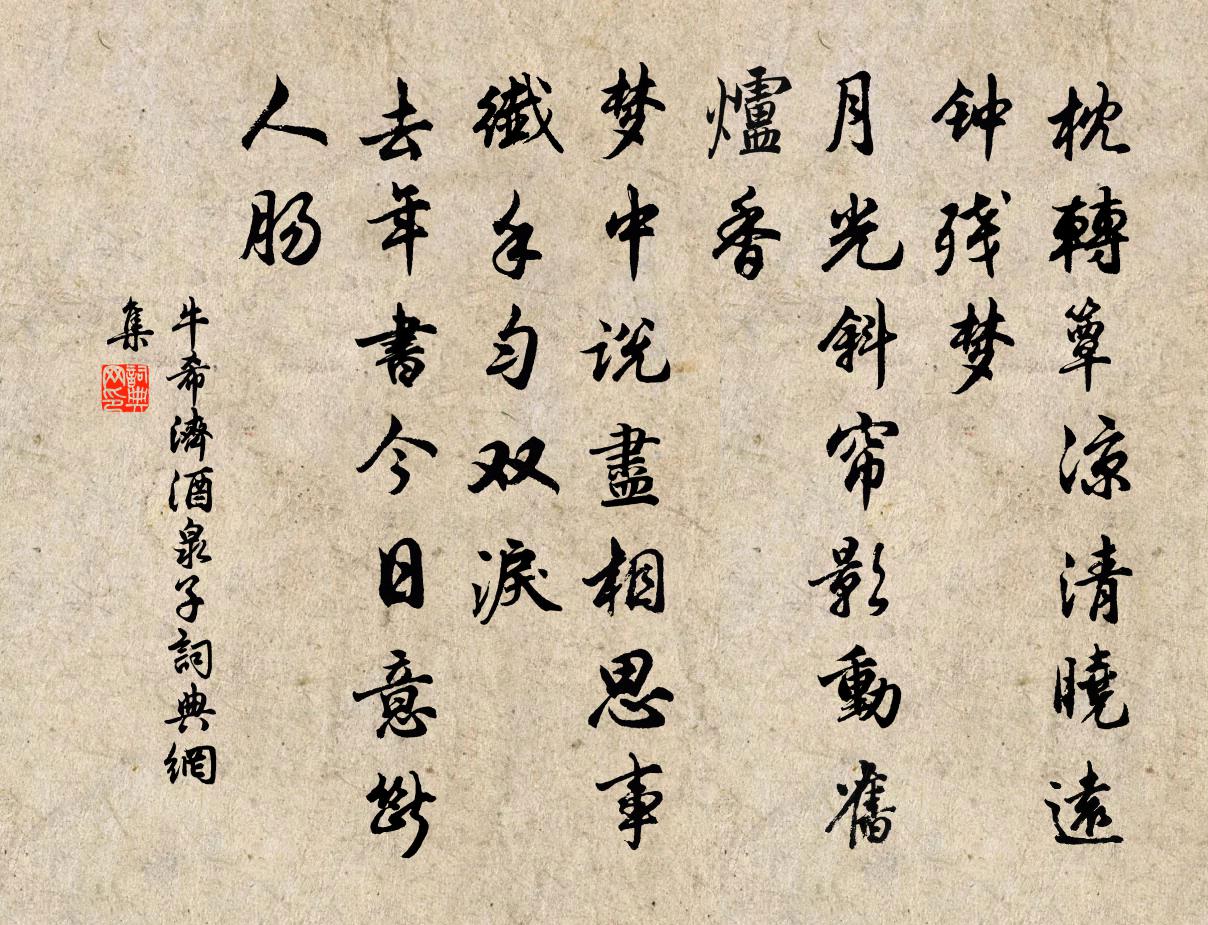 枕轉簟涼清曉遠
钟残梦
月光斜帘影動舊
爐香
梦中说盡相思事
纖手匀双淚
去年書今日意斷
人肠
牛希濟酒泉子詞典網
集
詞典
网印